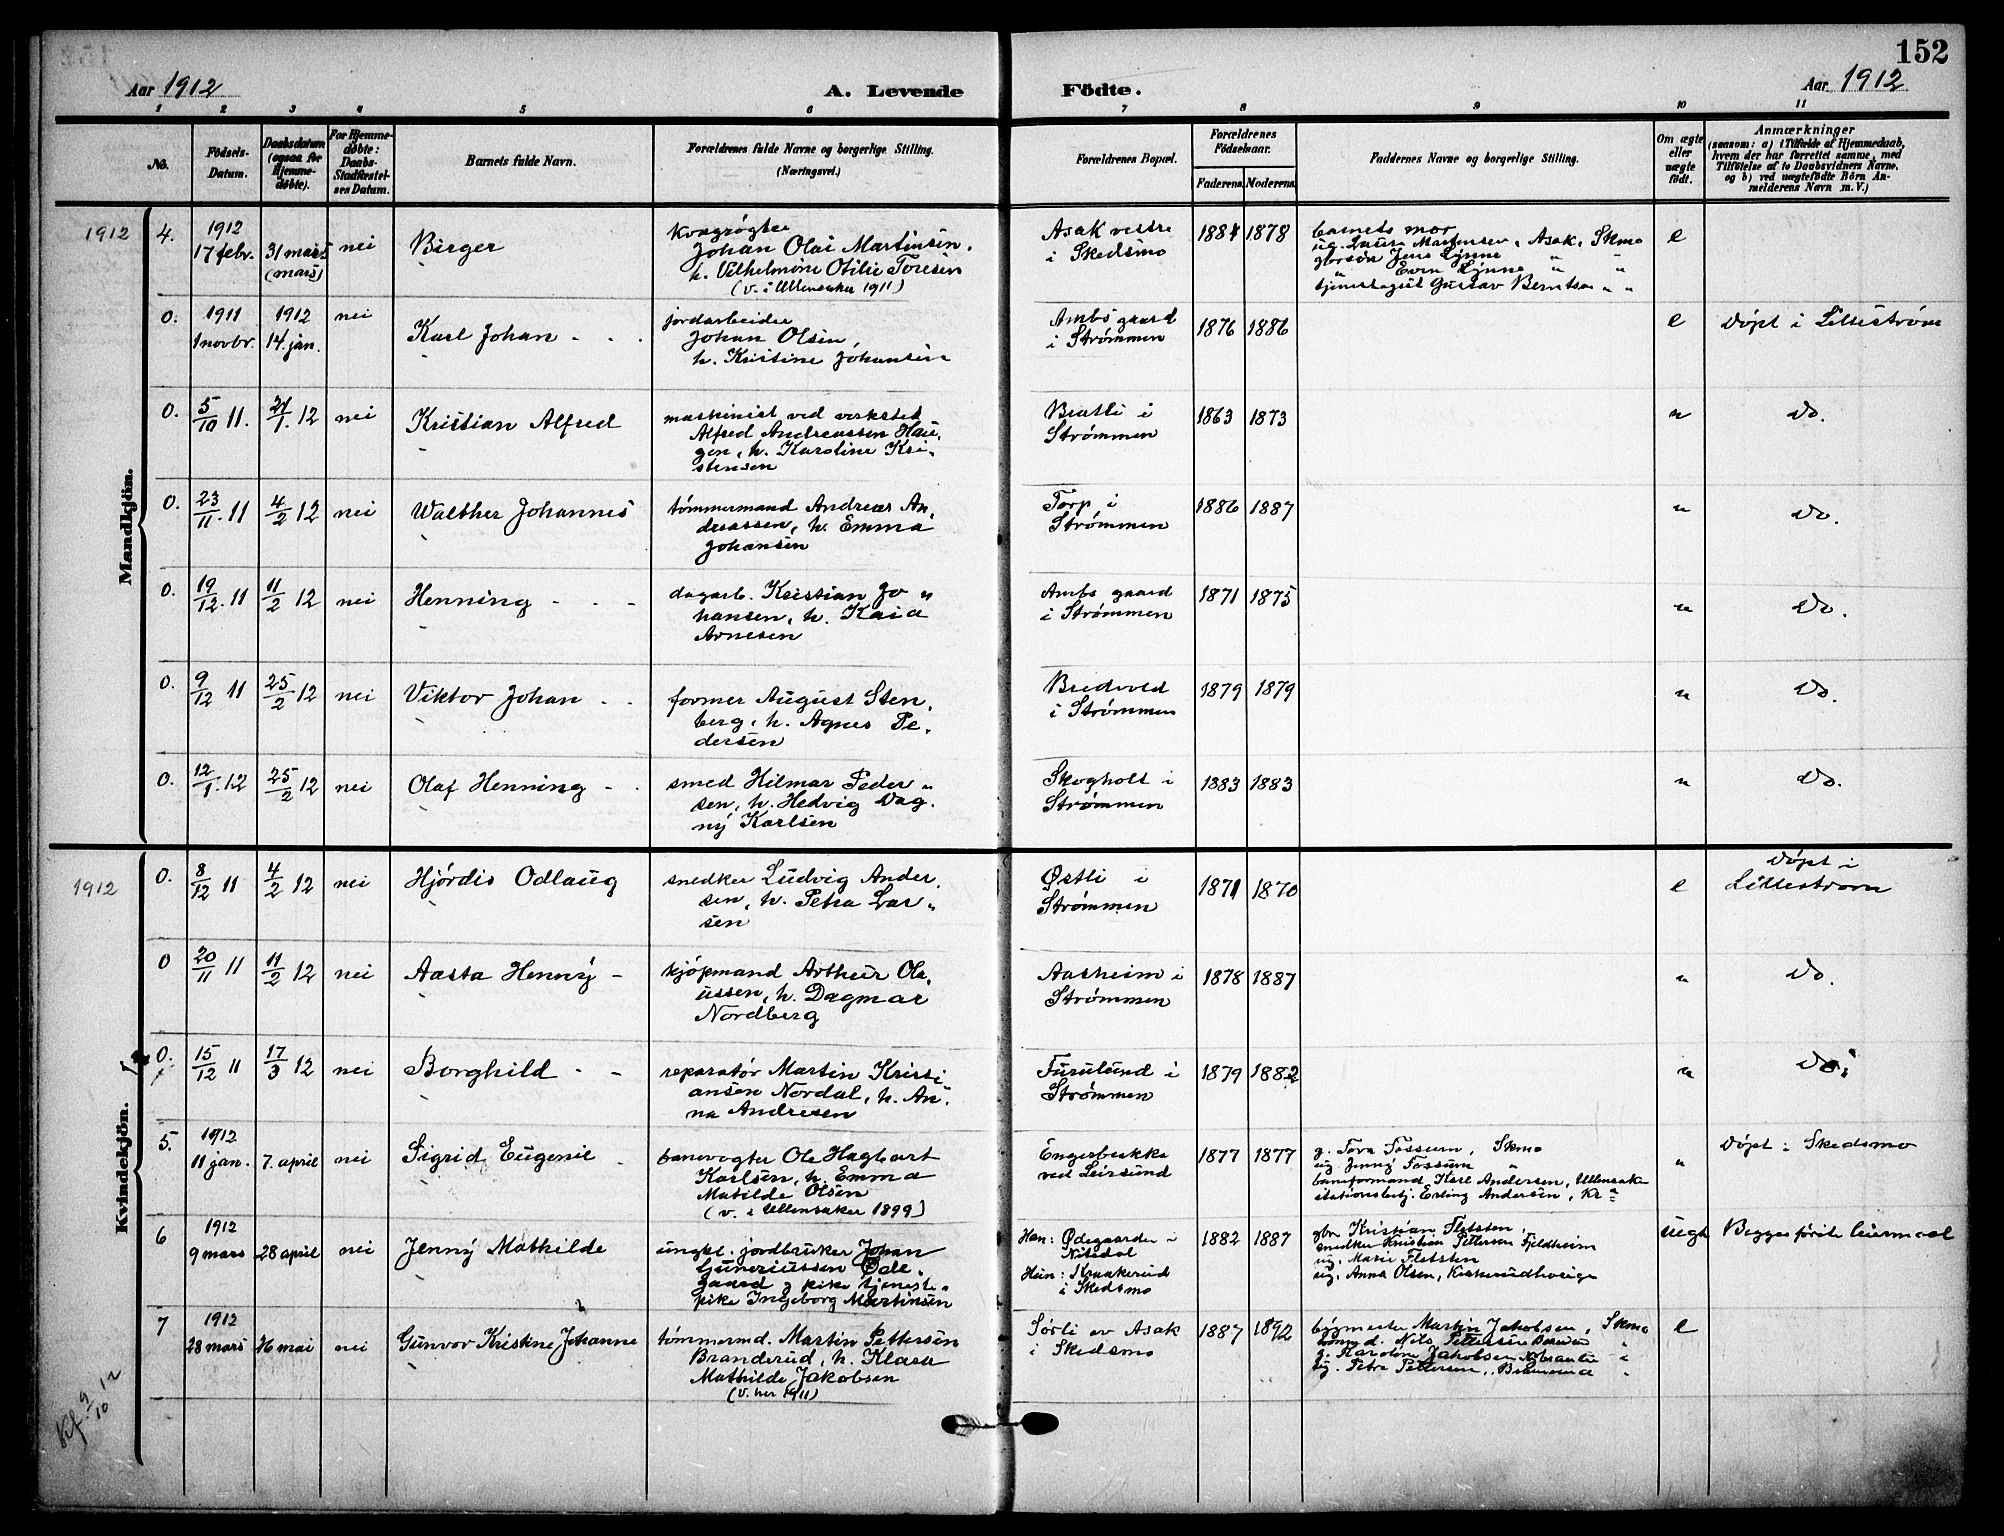 152
Aar 1912
A. Levende
Födte.
Aar 1912
1 2 3 4 5 6 7 8 9 10 11
No.
Födsels-
Datum.
Daabsdatum
(ogsaa for
Hjemme-
döbte).
For Hjemme-
döbte:
Daabs-
Stadfæstel-
ses Datum.
Barnets fulde Navn.
Forældrenes fulde Navne og borgerlige Stilling.
(Næringsvei.)
Forældrenes Bopæl.
Forældrenes
Födselsaar.
Faderens. Moderens.
Faddernes Navne og borgerlige Stilling.
Om ægte
eller
uægte
födt.
Anmærkninger
(saasom: a) i Tilfælde af Hjemmedaab,
hvem der har forrettet samme, med
Tilföielse af to Daabsvidners Navne,
og b) ved uægtefödte Börn An-
melderens Navn m. V.)
Mandkjön.
1912
4.
1912
17 febr.
31 mars
(mars)
nei
Birger
kvægrøgter
Johan Olai Martinsen,
h. Vilhelmine Otilie Toresen
(v. i Ullensaker 1911)
Asak vestre
i Skedsmo
1884 1878
barnets mor
ug. Laura Martinsen, Asak, Skmo
gbrsøn Jens Lynne " "
" Even Lynne " "
tjenestegut Gustav Berntsen " "
e
0.
1911
1 novbr.
1912
14 jan.
nei
Karl Johan
jordarbeider
Johan Olsen,
h. Kristine Johansen
Ambs gaard
i Strømmen
1876 1886
e
Døpt i Lillestrøm
0.
5/10 11.
21/1. 12
nei
Kristian Alfred
maskinist ved verksted
Alfred Andreassen Hau-
gen, h. Karoline Kri-
stensen
Bratli i
Strømmen
1863 1873
"
Do.
0.
23/11. 11
4/2 12
nei
Walther Johannes
tømmermand Andreas An-
dreassen, h. Emma
Johansen
Torp i
Strømmen
1886 1887
"
Do.
0.
19/12. 11
11/2 12
nei
Henning
dagarb. Kristian Jo-
hansen, h. Kaia
Arnesen
Ambs gaard
i Strømmen
1871 1875
"
Do.
0.
9/12 11
25/2 12
nei
Viktor Johan
former August Sten-
berg, h. Agnes Pe-
dersen
Bredeved
i Strømmen
1879 1879
"
Do.
0.
12/1. 12
25/2 12
nei
Olaf Henning
smed Hilmar Peder-
sen, h. Hedvig Dag-
ny Karlsen
Skogholt i
Strømmen
1883 1883
"
Do.
Kvindekjön.
1912
0.
8/12 11
4/2 12
nei
Hjørdis Odlaug
snedker Ludvig Ander-
sen, h. Petra Lar-
sen
Østli i
Strømmen
1871 1870
e
Døpt i
Lillestrøm
0
20/11 11
11/2 12
nei
Aasta Henny
kjøpmand Arthur Ole-
ussen, h. Dagmar
Nordberg
Aasheim i
Strømmen
1878 1887
"
Do.
0.
15/12 11
17/3 12
nei
Borghild
reparatør Martin Kristi-
ansen Nordal, h. An-
na Andresen
Furulund i
Strømmen
1879 1882
"
Do.
5.
1912
11 jan.
7. april
nei
Sigrid Eugenie
banevogter Ole Hagbart
Karlsen, h. Emma
Matilde Olsen
(v. i Ullensaker 1899)
Engerbakke
ved Leirsund
1877 1877
g. Tora Fossum, Skmo
ug. Jenny Fossum "
baneformand Karl Andersen, Ullensake
stationsbetj. Erling Andersen, Kra
"
Døpt i Skedsmo
6
1912
9 mars
28 april
nei
Jenny Mathilde
ungk. jordbruker Johan
Guneriussen Øde-
gaard g pike tjeneste-
pike Ingeborg Martinsen
Han: Ødegaarden i
Nitedal
Hun: Kraakerud
i Skedsmo
1882 1887
gbr Kristian Fletsten,
snedker Kristian Pettersen Fjeldheim
ug. Marie Fletsten
ug. Anna Olsen,
uegte
Begges første leiermaal
7
1912
28 mars
26 mai
nei
Gunvor Kristine Johanne
tømmermd. Martin Pettersen
Branderud, h. Klara
Mathilde Jakobsen
(v. her 1911)
Sørli av Asak
i Skedsmo
1887 1892
bygmester Martin Jakobsen, Skmo
tømmd. Nils Pettersen "
g. Karoline Jakobsen "
ug. Petra Pettersen, "
e
Kf. 9/10 12